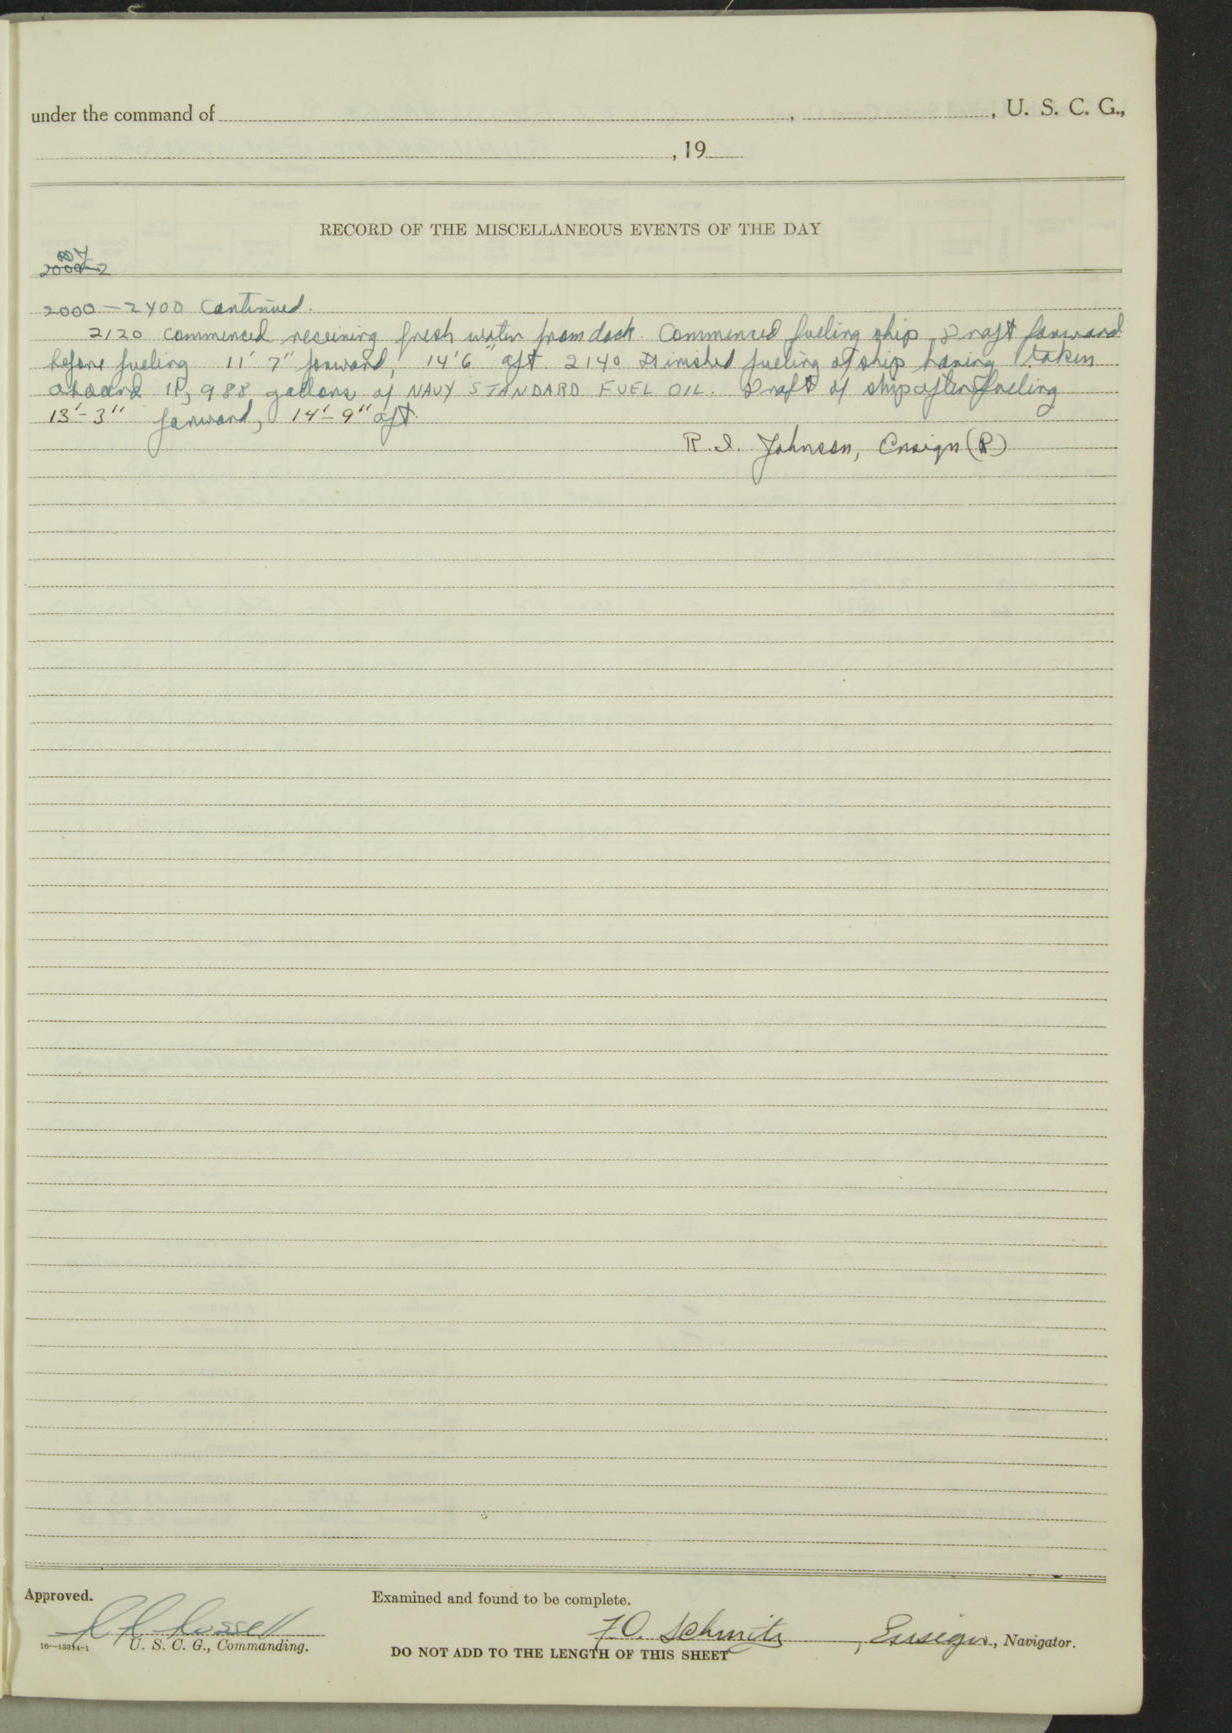 under the command of , , U. S. C. G.,
, 19
RECORD OF THE MISCELLANEOUS EVENTS OF THE DAY
2000-2400 Continued.
2120 Commenced receiving fresh water from dock. Commenced fueling ship, Draft forward
before fueling 11' 7" forward, 14' 6" aft 2140 Finished fueling of ship having taken
aboard 988 gallons of NAVY STANDARD FUEL OIL. Draft of ship after fueling
13'-3" forward, 14'-9" aft.
R.I. Johnson, Ensign (R)
Approved. Examined and found to be complete.
Russell F.O. Schmitz, Ensign, Navigator.
U. S. C. G., Commanding.
DO NOT ADD TO THE LENGTH OF THIS SHEET